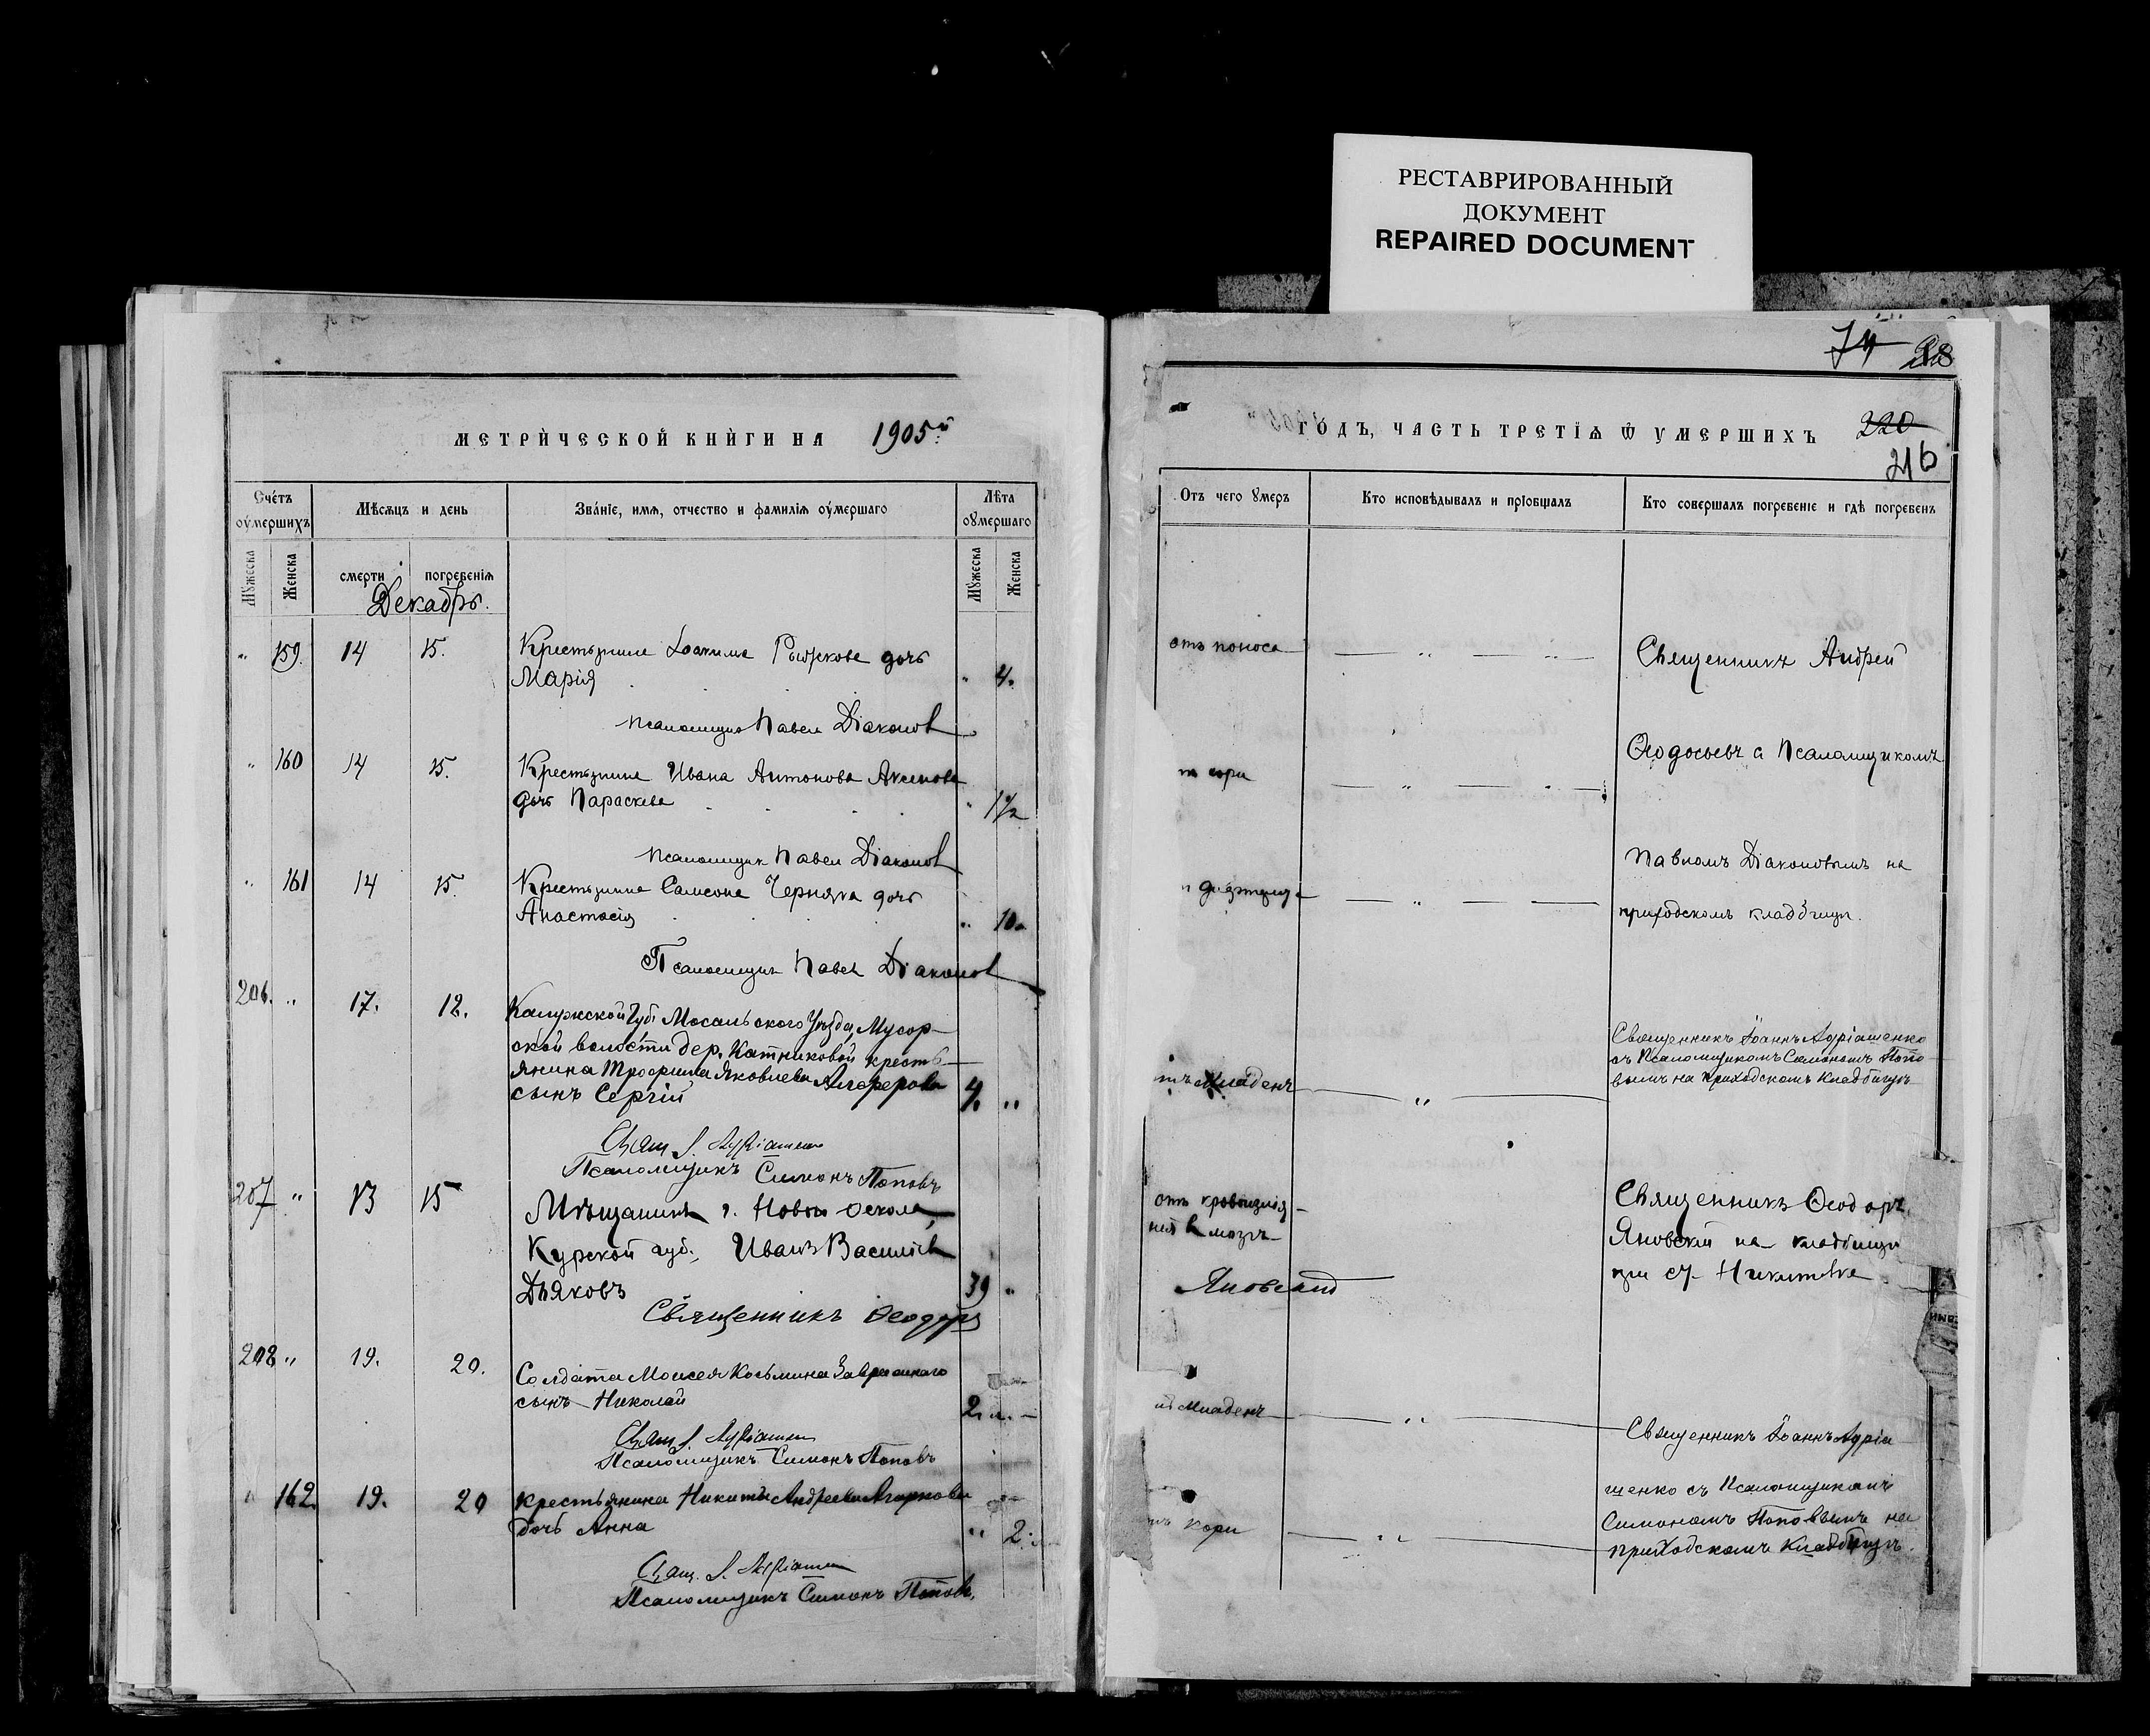 РЕСТАВРИРОВАННЫЙ
ДОКУМЕНТ
REPAIRED DOCUMENT
МЕТРИ́ЧЕСКОЙ КНИ́ГИ НА 1905й
Сче́тъ ѹ́мершихъ
Мѣсяцъ и день
Зва́нїе, имя, отчество и фамилїя ѹ́мершаго
Лѣта ѹмершаго
Мꙋжеска
Женска
смерти
погребенїя
Мꙋжеска
Женска
Декабрь.
" 159. 14 15. Крестьянина Іоакима Рыжкова дочь
Марія " 4.
Псаломщикъ Павелъ Діаконовъ
" 160 14 15. Крестьянина Ивана Антонова Аксенова
дочь Параскева " 1½
Псаломщикъ Павелъ Діаконовъ
" 161 14 15. Крестьянина Самсона Черняка дочь
Анастасія " 10.
Псаломщикъ Павелъ Діаконовъ
206. " 17. 18. Калужской Губ. Мосальского Уѣзда, Мусор-
ской волости дер. Катниковой кресть-
янина Трофима Яковлева
сынъ Сергій 4. "
Свящ. І. Адріашенко
Псаломщикъ Симонъ Поповъ
207 " 13 15 Мѣщанинъ г. Новый Осколъ,
Курской губ., Иванъ Василіевъ
Дьяковъ 39 "
Священникъ Ѳеодоръ
208 " 19. 20. Солдата Моисея Косьмина
сынъ Николай 2.
Свящ. І. Адріашенко
Псаломщикъ Симонъ Поповъ
" 162. 19. 20 Крестьянина Никиты Андреева
дочь Анна " 2.
Свящ. І. Адріашенко
Псаломщикъ Симонъ Поповъ.
74
ГОДЪ, ЧАСТЬ ТРЕТІѦ Ѿ УМЕРШИХЪ 220
216
Отъ чего ꙋмеръ
Кто исповѣдывалъ и прїобщалъ
Кто совершалъ погребенїе и гдѣ погребенъ
отъ поноса
Священникъ Андрей
Ѳеодосьевъ съ Псаломщикомъ
кори
Павломъ Діаконовымъ на
приходскомъ кладбищѣ.
Священникъ Іоаннъ Адріашенко
съ Псаломщикомъ Симономъ Попо-
вымъ на приходскомъ кладбищѣ
младенч
отъ кровоизлія-
нія в мозгъ
Священникъ Ѳеодоръ
Яновскій на кладбищѣ
при ст. Никитовка
Яновскій
младенч
Священникъ Іоаннъ Адріа-
шенко съ Псаломщикомъ
Симономъ Поповымъ на
приходскомъ кладбищѣ.
кори